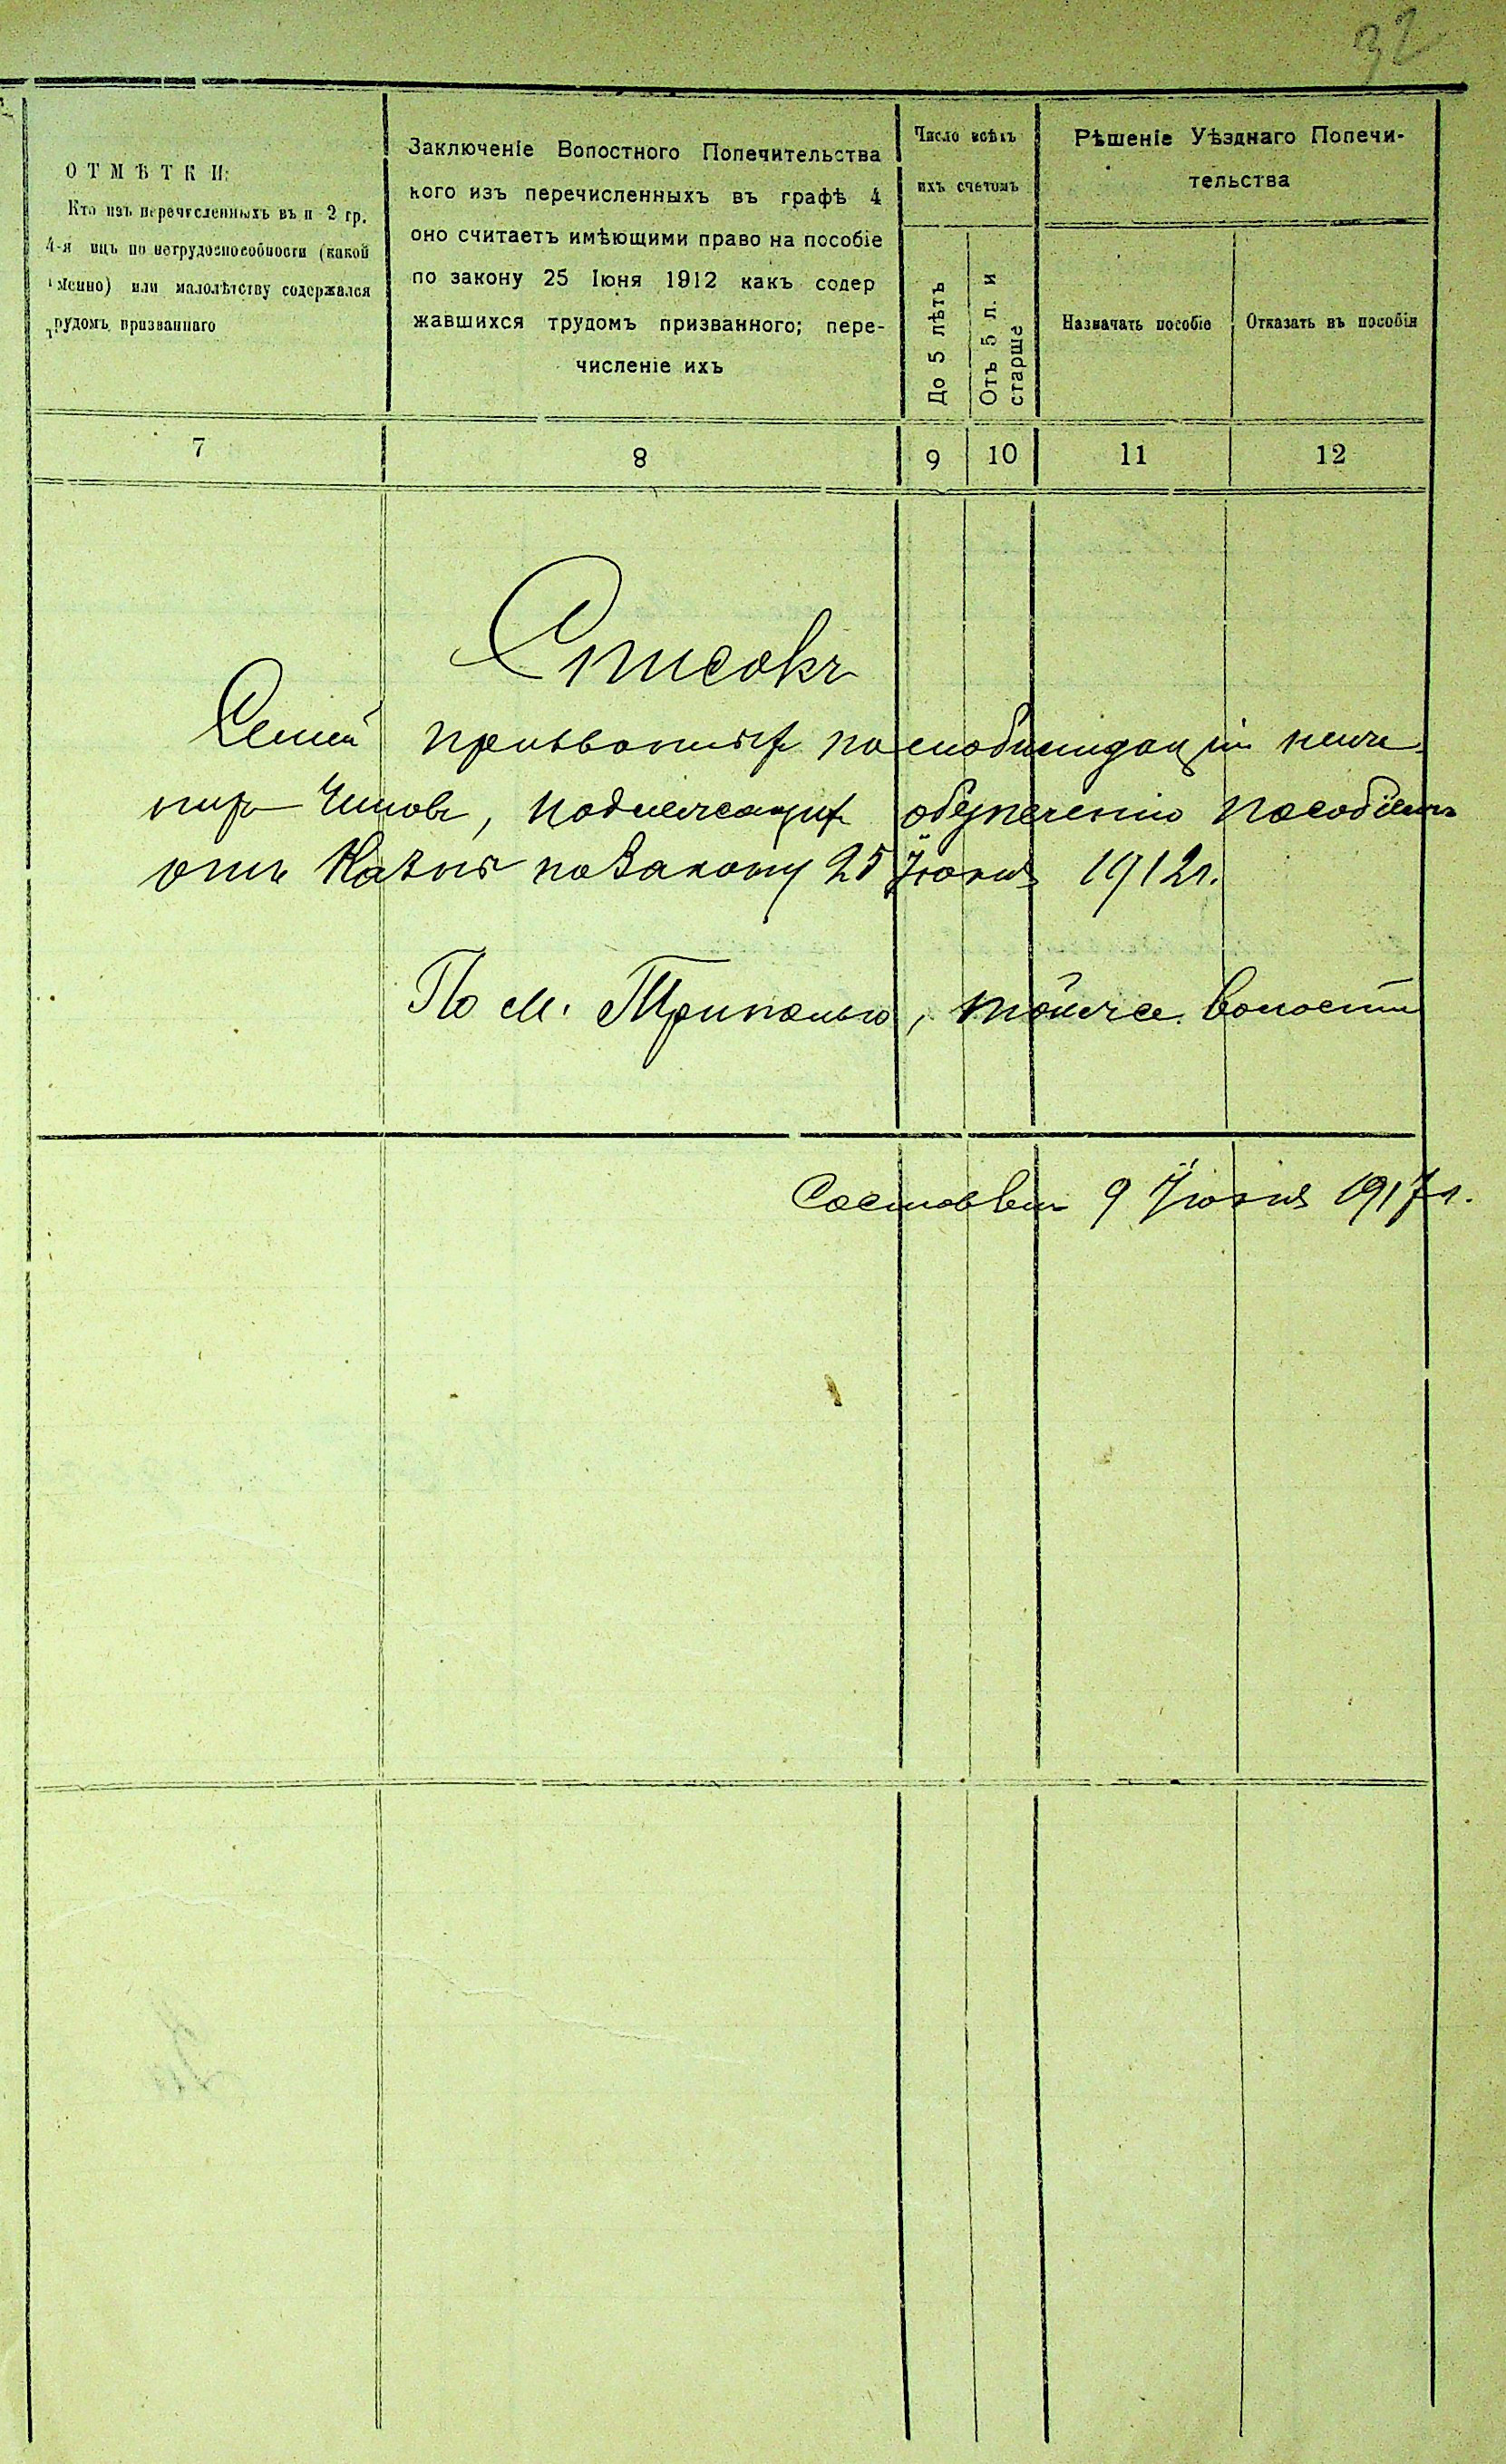 32
ОТМѢТКИ:
Кто изъ перечисленныхъ въ п 2 гр.
4-я ицъ по нетрудоспособности (какой
менно) или малолѣтству содержался
трудомъ призваннаго
Заключеніе Волостного Попечительства
кого изъ перечисленныхъ въ графѣ 4
оно считаетъ имѣющими право на пособіе
по закону 25 Іюня 1912 какъ содер
жавшихся трудомъ призванного; пере-
численіе ихъ
Число всѣхъ
ихъ счетомъ
До 5 лѣтъ
Отъ 5 л. и
старше
Рѣшеніе Уѣзднаго Попечи-
тельства
Назначать пособіе
Отказать въ пособія
7 8 9 10 11 12
Списокъ
Семей призванныхъ по мобилизаціи нижи
нихъ Чиновъ, подлежащихъ обезпеченію пособіемъ
отъ Казны по Закону 25 Іюня 1912 г.
По м. Триполью, тойже волости
Составленъ 9 Іюня 1917 г.